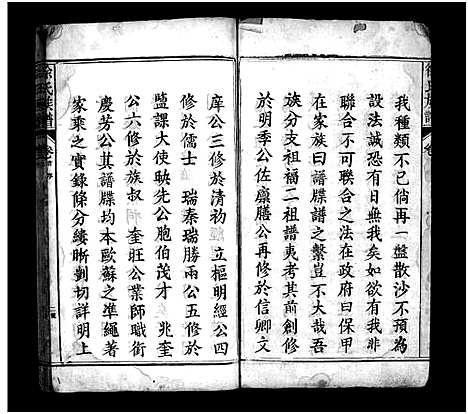 我種類不已倘再一盤散沙不預為
設法誠恐有日無我矣如欲有我非
聯合不可聯合之法在政府曰保甲
在家族曰譜牒譜之繫豈不大哉吾
族分支祖福二祖譜夷考其前創修
於明季公佐廩膳公再修於信卿文
庠公三修於清初 立樞明經公四
修於儒士 瑞泰瑞勝兩公五修於
監課大使映先公胞伯茂才 兆奎
公六修於族叔 奎旺公業師職銜
慶芳公其譜牒均本歐蘇之準繩著
家乘之實錄條分縷晰剴切詳明上
徐氏族譜
卷首
序